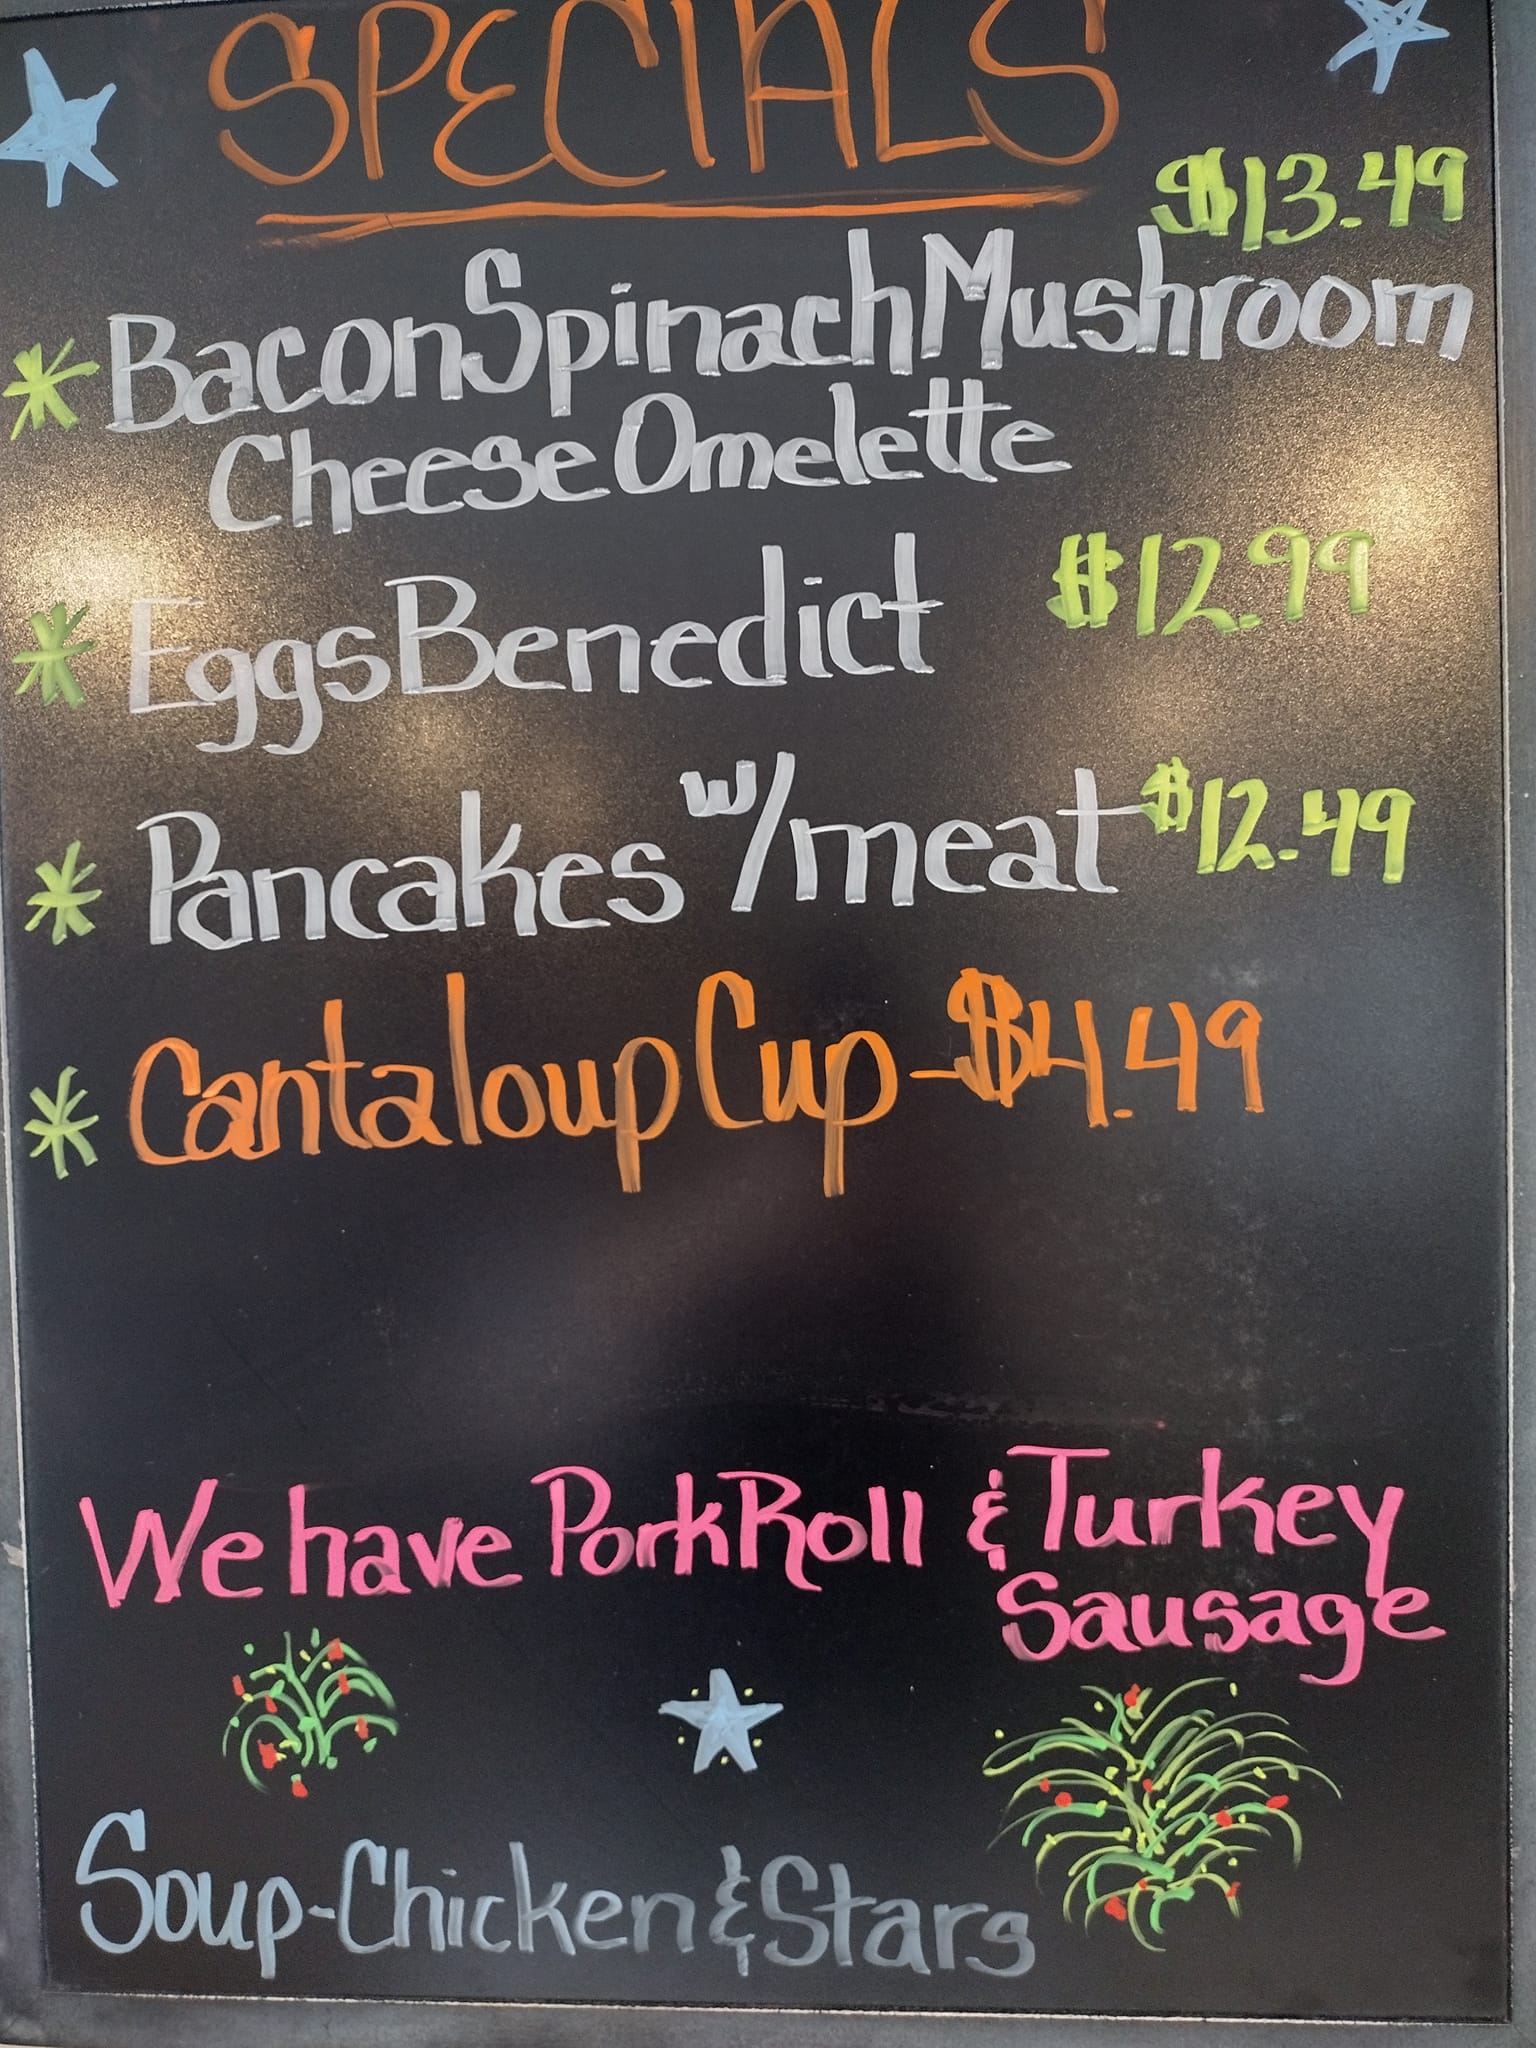 SPECIALS
$13.49
* Bacon Spinach Mushroom
Cheese Omelette
* Eggs Benedict $12.99
* Pancakes w/meat $12.49
* Cantaloup Cup - $4.49
We have Pork Roll & Turkey
Sausage
Soup - Chicken & Stars